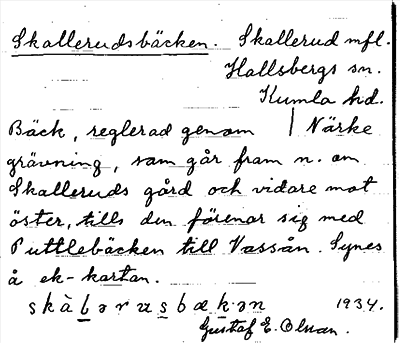 Skallerudsbäcken. Skallerud mfl.
Hallsbergs sn.
Kumla hd.
Bäck, reglerad genom | Närke
grävning, som går fram n. om
Skalleruds gård och vidare mot
öster, tills den förenar sig med
Puttlebäcken till Vassån. Synes
å ek-kartan.
skàlərusbækən 1934.
Gustaf E. Olsson.